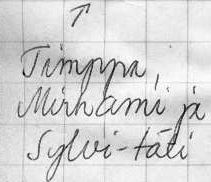 Timppa,
Mirhami ja
Sylvi-täti